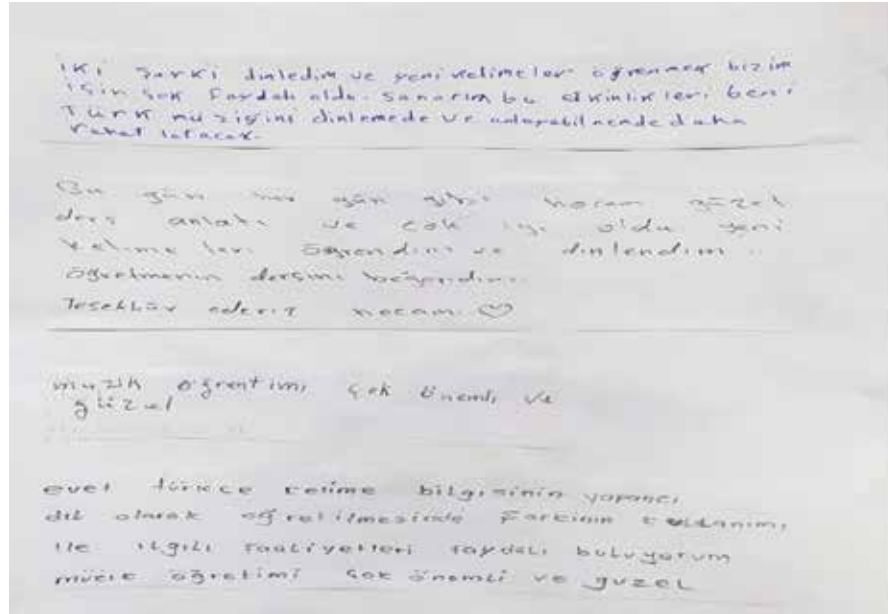 iki şarki dinledim ve yeni kelimeler öğrenmek bizim
için çok faydalı oldu. Sanarım bu etkinlikleri beni
Türk muziğini dinlemede ve anlayabilmemde daha
rahat
Bu gün her gün gibi hocam güzel
ders anlatı ve cok iyi oldu yeni
kelimeleri öğrendim ve dinlendim ..
öğretmenin dersini beğendim.
Teşekkür ederiz hocam. ♡
muzik öğrentimi çok önemli ve
güzel
evet türkce kelime bilgisinin yapancı
dil olarak öğretilmesinde Şarkının kullanımı
ile ilgili faaliyetleri faydalı buluyorum
öğretimi çok önemli ve guzel